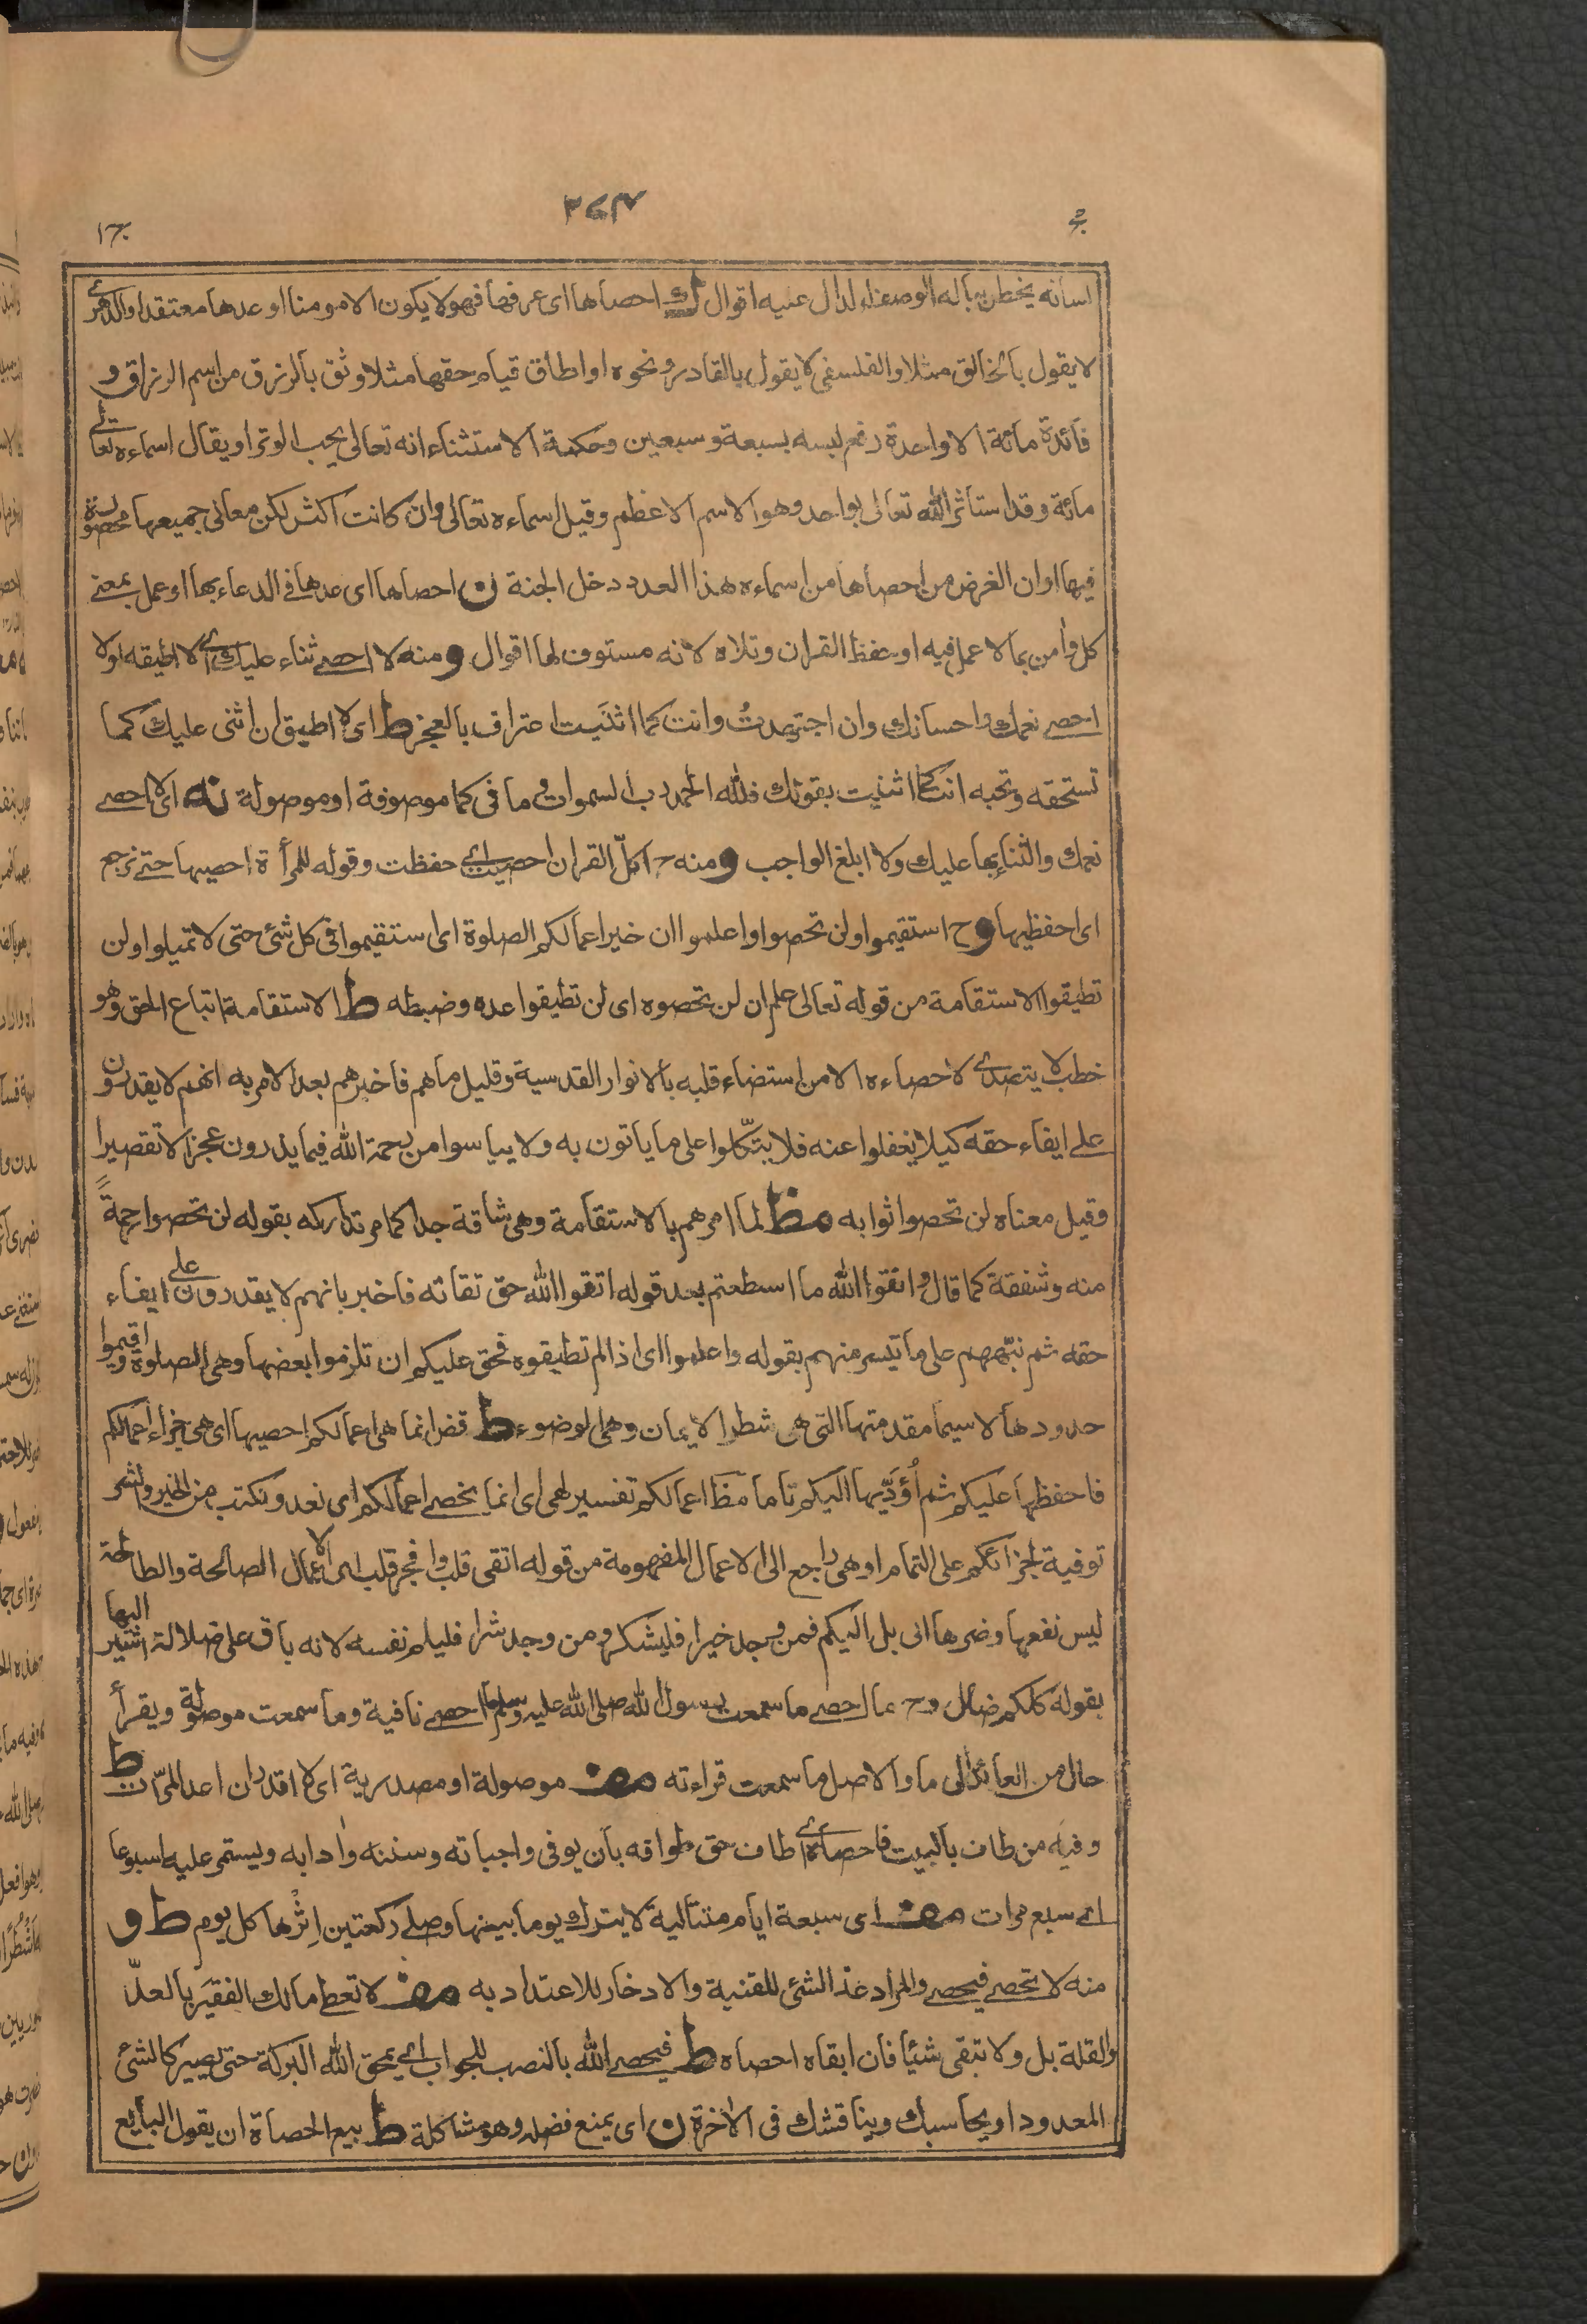 ٢٧٤
لسانه يخطر بباله الوصف الدال عليه اقوال ك احصاها اى عرفها فهو لا يكون الا مومنا او عدها معتقدا والدهرى
لا يقول بالخالق مثلا والفلسفى لا يقول بالقادر ونحوه او اطاق قيام حقها مثلا وثق بالرزق من اسم الرزاق و
فائدة مائة الا واحدة رفع لبسه بسبعة وسبعين وحكمة الاستثناء انه تعالى يحب الوتر او يقال اسماءه تعالى
مائة وقد استأثر الله تعالى بواحد وهو الاسم الاعظم وقيل اسماءه تعالى وان كانت اكثر لكن معانى جميعها محصورة
فيها او ان الغرض من احصاها من اسماءه هذا العدد دخل الجنة ن احصاها اى عدها فى الدعاء بها او عمل بمعنى
كل وأمن بما لا عمل فيه او حفظ القران وتلاه لانه مستوف لها اقوال ومنه لا احصى ثناء عليك اى لا اطيقه او لا
احصى نعمك واحسانك وان اجتهدتُ وانت كما اثنَيت اعتراف بالعجز ط اى لا اطيق ان اثنى عليك كما
تستحقه وتحبه انت كما اثنيت بقولك فلله الحمد رب السموات و ما فى كما موصوفة او موصولة نه اى لا احصى
نعمك والثناء بها عليك ولا ابلغ الواجب ومنه ح اكلّ القران احصيت اى حفظت وقوله للمرأة احصيها حتى نرجع
اى احفظيها وح استقيموا ولن تحصوا واعلموا ان خير اعمالكم الصلوة اى استقيموا فى كل شئ حتى لا تميلوا ولن
تطيقوا الاستقامة من قوله تعالى علم ان لن تحصوه اى لن تطيقوا عده وضبطه ط الاستقامة اتباع الحق وهو
خطب لا يتصدى لاحصاءه الا من استضاء قلبه بالانوار القدسية وقليل ما هم فاخبرهم بعد الامر به انهم لا يقدرون
على ايفاء حقه كيلا يغفلوا عنه فلا يتكّلوا على ما ياتون به ولا ييأسوا من رحمة الله فيما يذرون عجزا لا تقصيرا
وقيل معناه لن تحصوا ثوابه مظ لما امرهم بالاستقامة وهى شاقة جدا كما مر تداركه بقوله لن تحصوا رحمةً
منه وشفقة كما قال واتقوا الله ما اسطعتم بعد قوله اتقوا الله حق تقاته فاخبر بانهم لا يقدرون على ايفاء
حقه ثم نبّههم على ما تيسر منهم بقوله واعلموا اى اذا لم تطيقوه فحق عليكم ان تلزموا بعضها وهى الصلوة واقيموا
حدودها لا سيما مقدمتها التى هى شطر الايمان وهى الوضوء ط قض انما هى اعمالكم احصيها اى هى جزاء اعمالكم
فاحفظها عليكم ثم اُؤدّيها اليكم تاما مظ اعمالكم تفسير لهى اى انما يحصى اعمالكم اى نعد ونكتب من الخير والشر
توفية لجزائكم على التمام او هى راجع الى الاعمال المفهومة من قوله اتقى قلب وافجر قلب اى الاعمال الصالحة والطالحة
ليس نفعها وضرها الى بل اليكم فمن وجد خيرا فليشكر ومن وجد شرا فليلم نفسه لانه باق على ضلالة اشير اليها
بقوله كلكم ضال وح ما احصى ما سمعت رسول الله صلى الله عليه وسلم ما احصى نافية وما سمعت موصولة ويقرأ
حال من العائد الى ما والاصل ما سمعت قراءته مف موصولة او مصدرية اى لا اقدر ان اعد المرّات ط
وفيه من طاف بالبيت فاحصاه اى طاف حق طوافه بان يوفى واجباته وسننه وأدابه ويستمر عليه اسبوعا
اى سبع مرات مف اى سبعة ايام متتالية لا يترك يوما بينها وصلى ركعتين اِثْرها كل يوم ط و
منه لا تحصى فيحصى والمراد عدّ الشئ للقنية والادخار للاعتداد به مف لا تعطى مالك الفقير بالعدّ
والقلة بل ولا تبقى شيئا فان ابقاه احصاه ط فيحصى الله بالنصب للجواب اى يمحق الله البركة حتى يصير كالشئ
المعدود او يحاسبك ويناقشك فى الأخرة ن اى يمنع فضله وهو مشاكلة ط بيع الحصاة ان يقول البايع